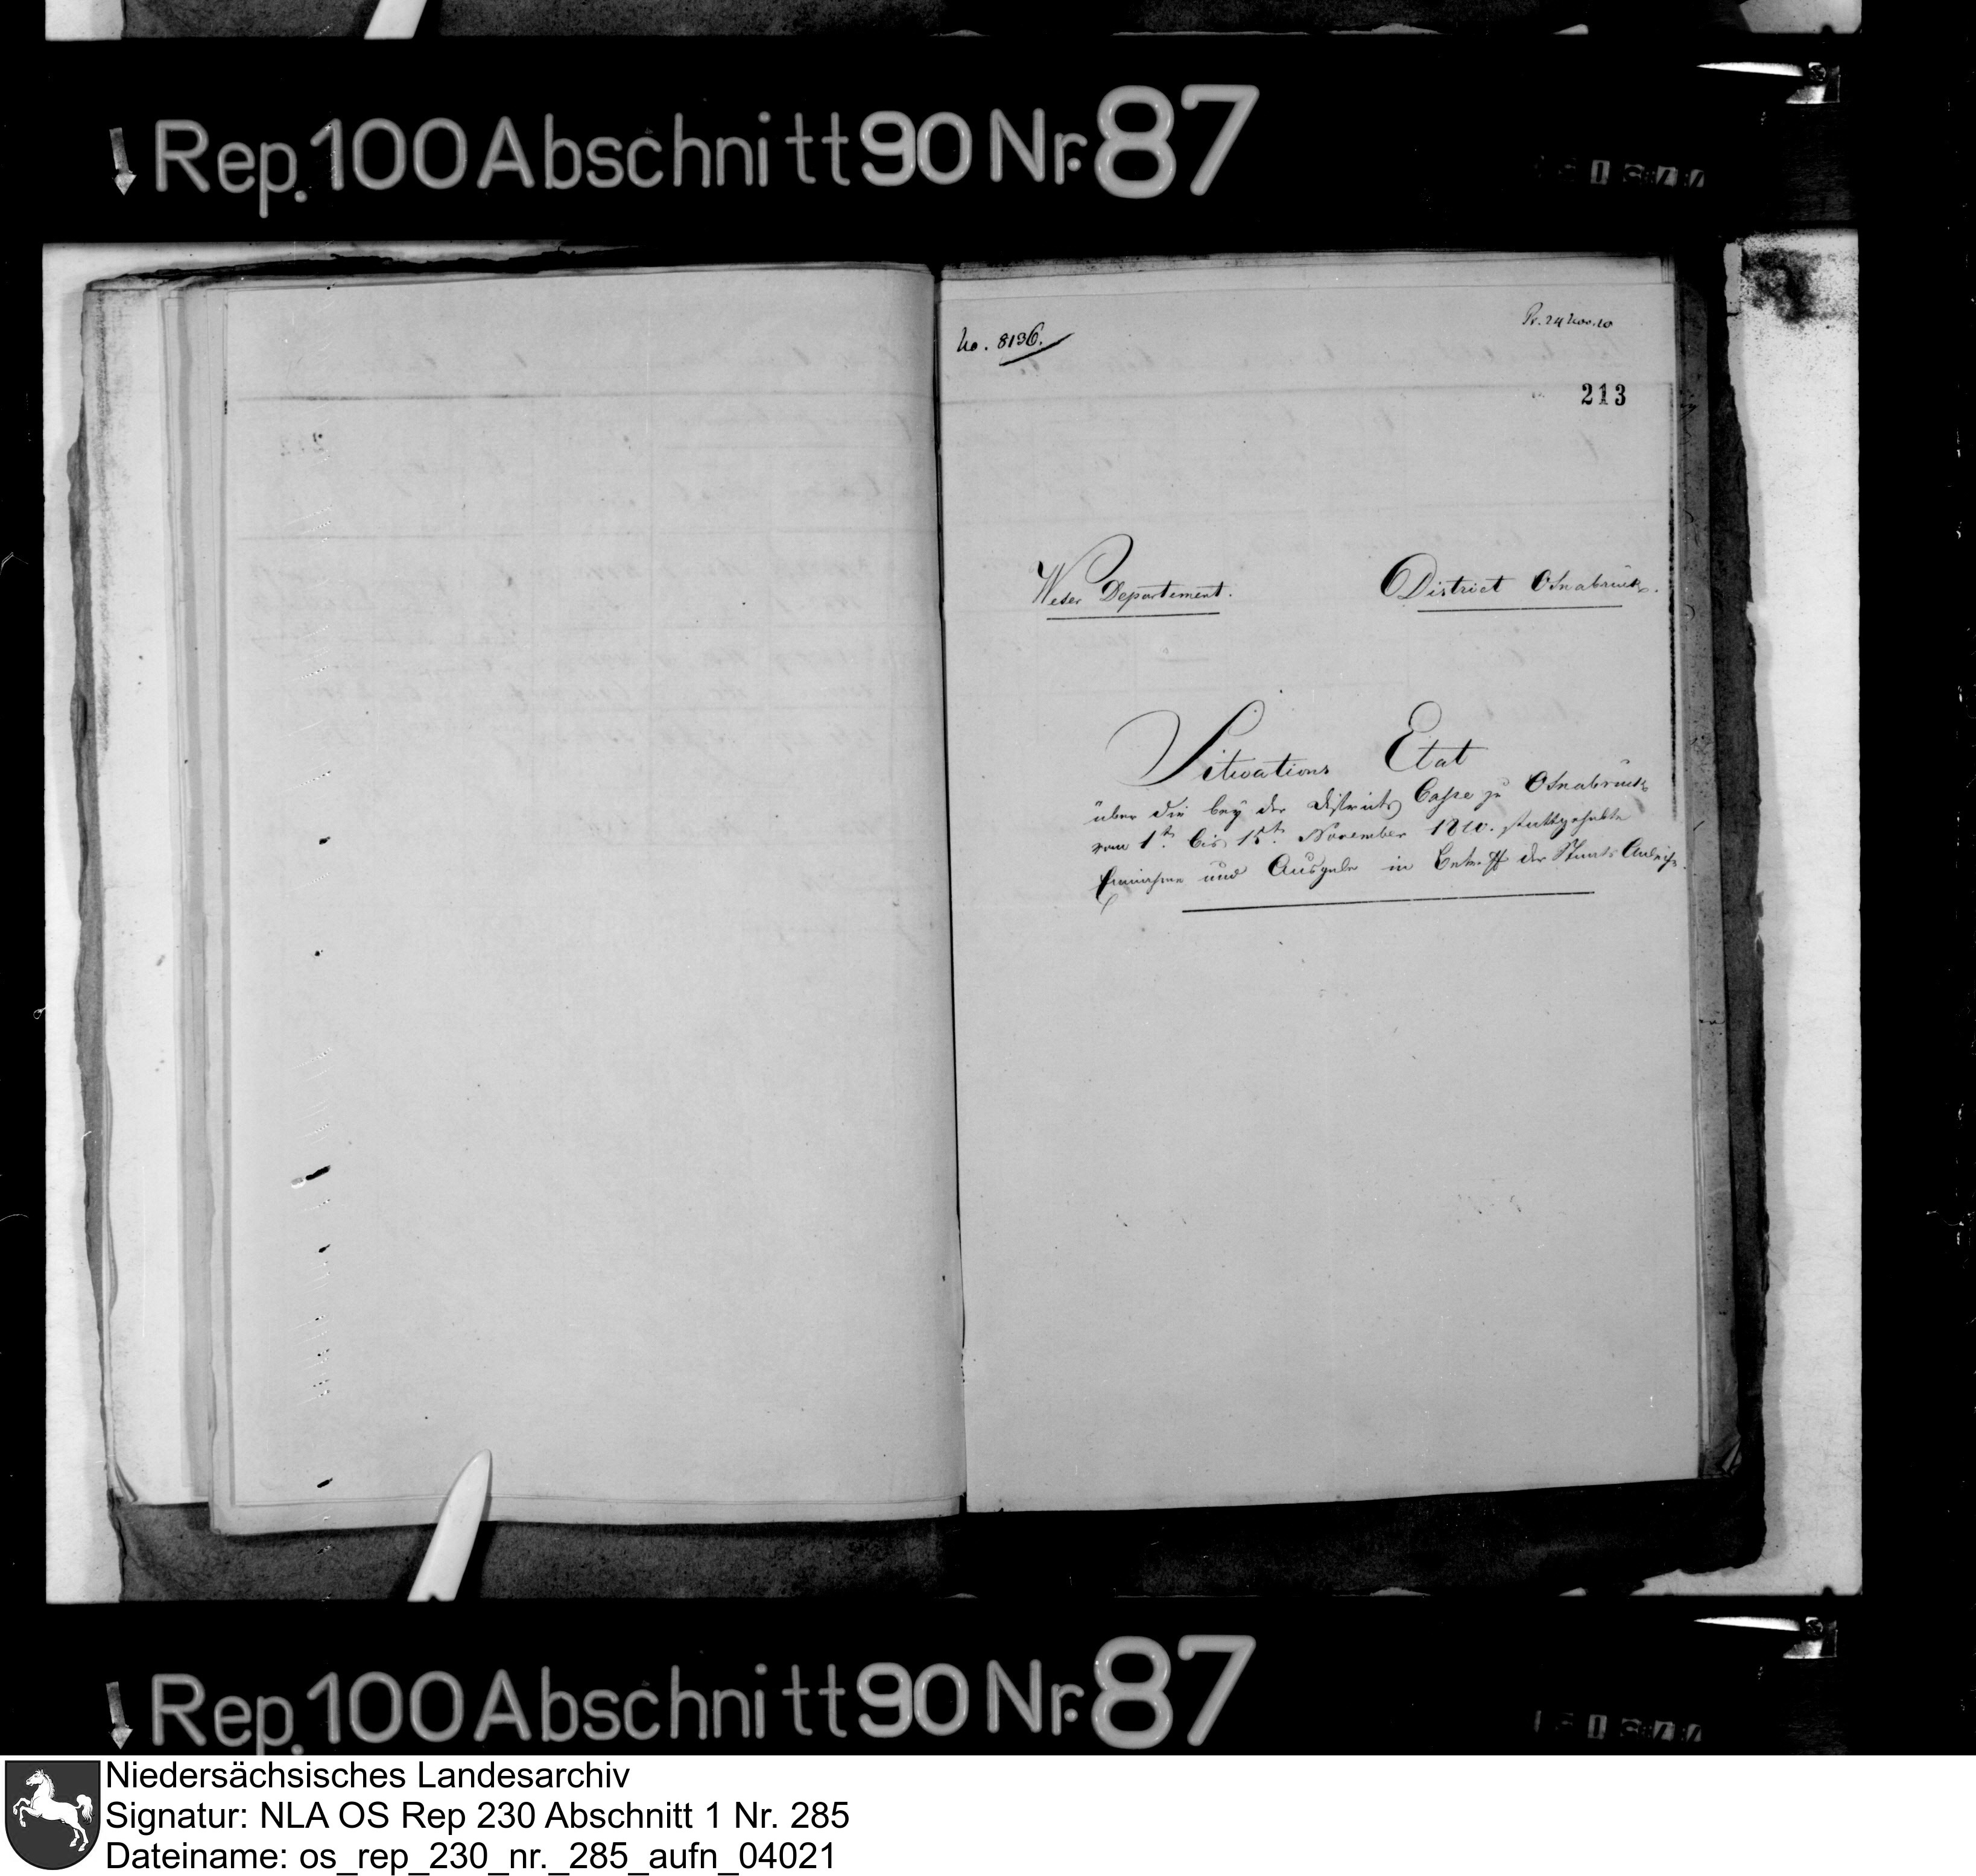 Rep. 100 Abschnitt 90 Nr. 87
No. 8136.
Pr. 24 Nov. 10
213
Weser Departement.
District Osnabrück.
Situations Etat
über die bey der Districts Casse zu Osnabrück
vom 1t. bis 15t. November 1810. stattgehabte
Einnahme und Ausgabe in Betreff der Staats Anleihe.
Rep. 100 Abschnitt 90 Nr. 87
Niedersächsisches Landesarchiv
Signatur: NLA OS Rep 230 Abschnitt 1 Nr. 285
Dateiname: os_rep_230_nr._285_aufn_04021